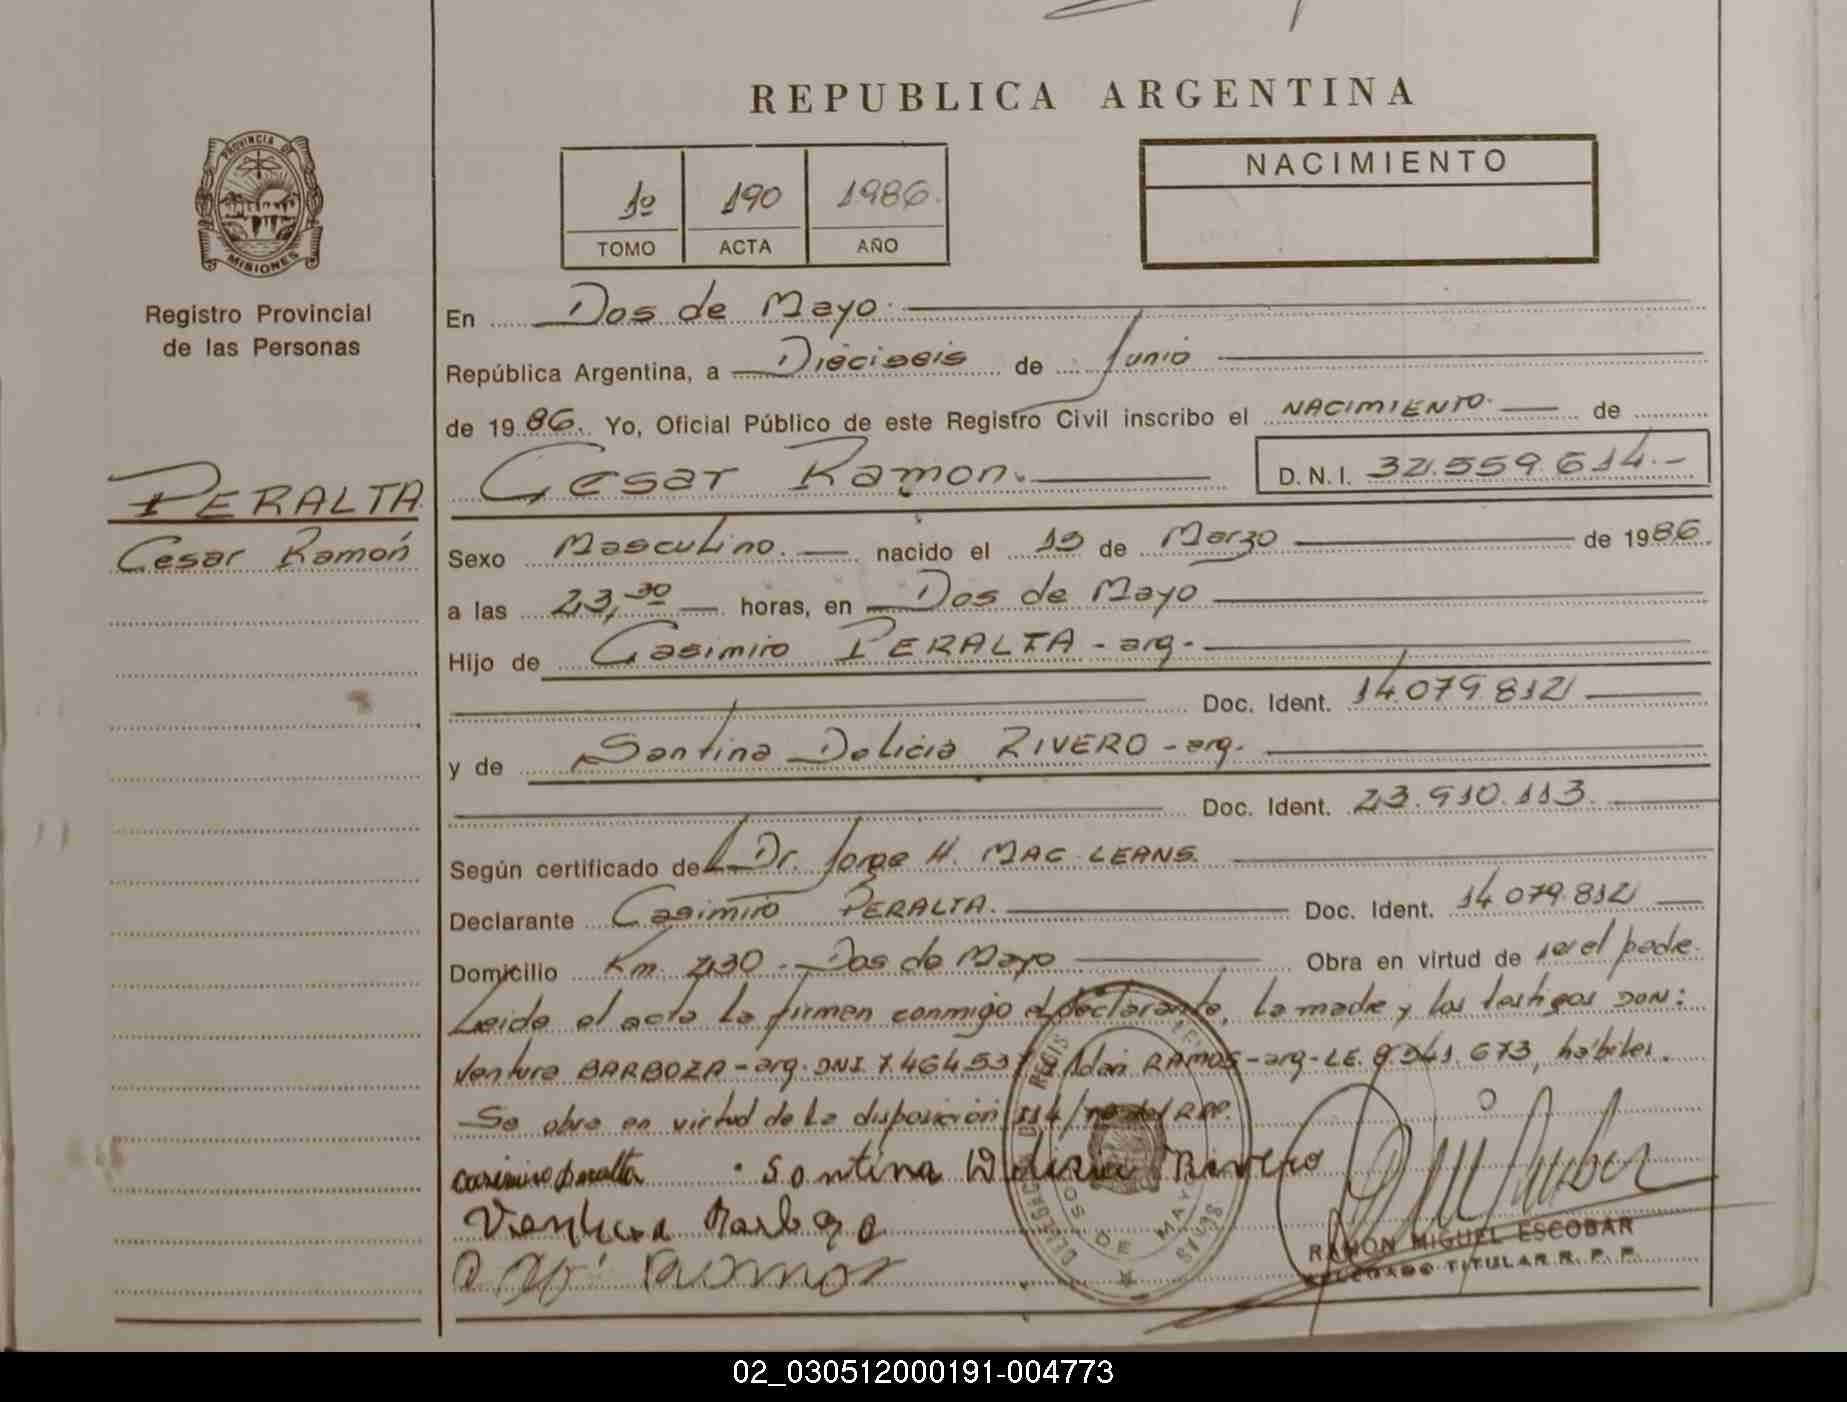 REPUBLICA ARGENTINA
PROVINCIA DE
MISIONES
Registro Provincial
de las Personas
1º 190 1986.
TOMO ACTA AÑO
NACIMIENTO
En Dos de Mayo.
República Argentina, a Dieciseis de Junio
de 19 86. Yo, Oficial Público de este Registro Civil inscribo el NACIMIENTO. de
Cesar Ramon. D.N.I. 32.559.614.-
PERALTA
Cesar Ramón
Sexo Masculino. nacido el 19 de Marzo de 1986
a las 23,30 horas, en Dos de Mayo
Hijo de Casimiro PERALTA - arg-
Doc. Ident. 14.079.812
y de Santina Delicia RIVERO - arg.
Doc. Ident. 23.910.113.
Según certificado de Dr. Jorge H. MAC LEANS.
Declarante Casimiro PERALTA. Doc. Ident. 14.079.812
Domicilio Km. 230 - Dos de Mayo Obra en virtud de ser el padre.
Leida el acta la firman conmigo el declarante, la madre y los testigos DON:
Ventura BARBOZA - arg. DNI 7.464.537 Adán RAMOS - arg- LE. 673, hábiles.
Se obra en virtud de la disposición 114/ del RPP.
casimiro peralta . Santina Delisia Rivero
Ventura Barboza
Ramos
DELEGACION DE REGIS
DOS DE MAYO
RAMON MIGUEL ESCOBAR
DELEGADO TITULAR R. P. P.
02_030512000191-004773